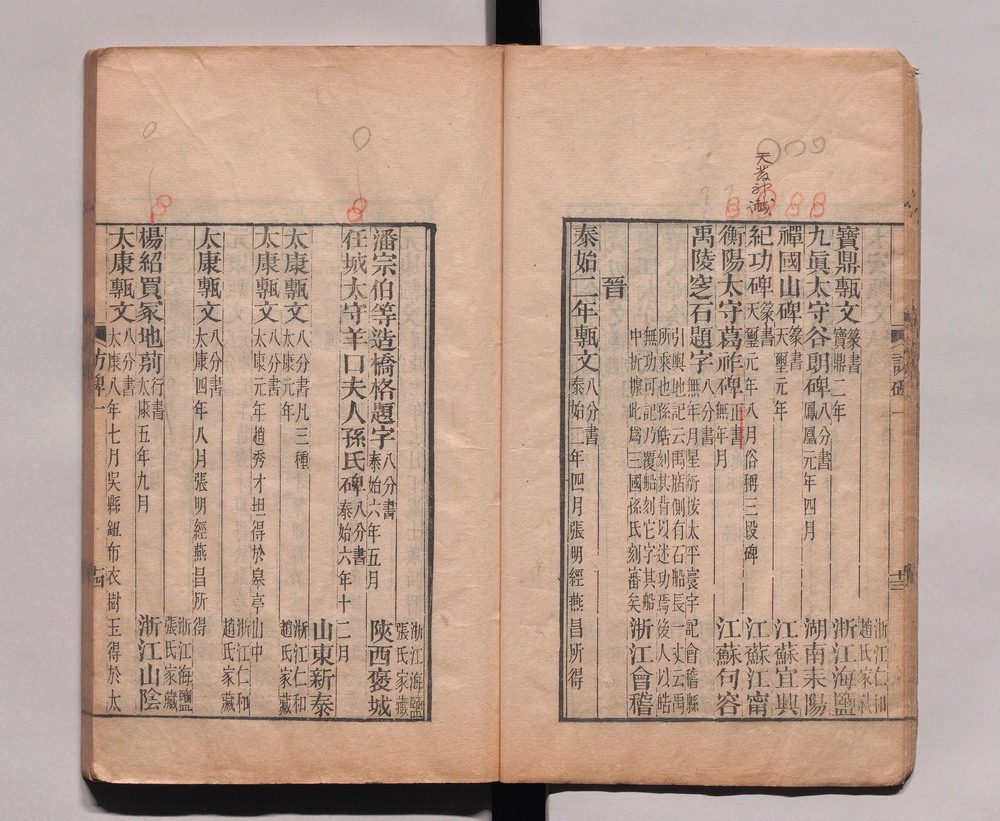 寶鼎甎文篆書寶鼎二年 浙江仁和趙氏家藏
九眞太守谷朗碑八分書鳳凰元年四月 浙江海鹽
禪國山碑篆書天璽元年 湖南耒陽
紀功碑篆書天璽元年八月俗稱三段碑 江蘇宜興
天發神讖
衡陽太守葛祚碑正書不無年月 江蘇江甯
禹陵窆石題字八分書無年月星衍按太平寰宇記會稽縣 江蘇句容
引輿地記云禹廟側有石船長一丈云禹
所乘也孫皓刻其背以述功焉後人以皓
無功可記乃覆船刻它字其船
中折據此爲三國孫氏刻審矣 浙江會稽
晉
泰始二年甎文八分書泰始二年四月張明經燕昌所得
訪碑一
十三
浙江海鹽張氏家藏
潘宗伯等造橋格題字八分書泰始六年五月 陝西褒城
任城太守羊口夫人孫氏碑八分書泰始六年十二月 山東新泰
太康甎文八分書凡三種太康元年 浙江仁和趙氏家藏
太康甎文八分書太康元年趙秀才坦得於皋亭山中 浙江仁和趙氏家藏
太康甎文八分書太康四年八月張明經燕昌所得 浙江海鹽張氏家藏
楊紹買冢地莂行書太康五年九月 浙江山陰
太康甎文八分書太康八年七月吳縣鈕布衣樹玉得於太
訪碑一
十四